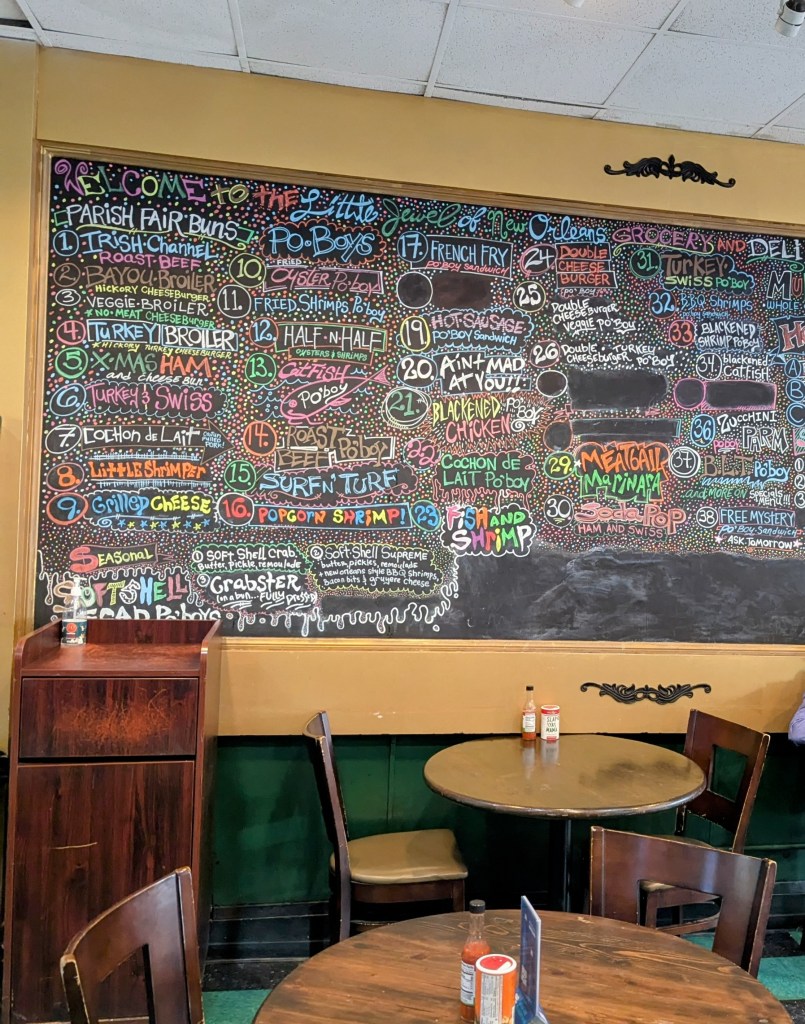 WELCOME to the Little Jewel of New Orleans GROCERY AND DELI
PARISH FAIR BUNS
1 IRISH CHANNEL
ROAST BEEF
2 BAYOU BROILER
HICKORY CHEESEBURGER
3 VEGGIE-BROILER
*NO MEAT CHEESEBURGER
4. TURKEY BROILER
*HICKORY TURKEY CHEESEBURGER
5 X-MAS HAM
and CHEESE BUN
6 TURKEY & SWISS
7 COCHON DE LAIT
8. LITTLE SHRIMPER
9. Grilled CHEESE
PO-BOYS
10. FRIED
OYSTER PO'BOY
11. FRIED SHRIMPS PO'BOY
12. HALF-N-HALF
OYSTERS & SHRIMPS
13. CATFISH
PO'BOY
14. ROAST PO'BOY
BEEF
15 SURF N' TURF
16. POPCORN SHRIMP!
17. FRENCH FRY
PO'BOY SANDWICH
19 HOT-SAUSAGE
PO'BOY SANDWICH
20. AIN'T MAD
AT YOU!!
21. BLACKENED PO'BOY
CHICKEN
22 COCHON DE
LAIT PO'BOY
23 FISH AND
SHRIMP
24 DOUBLE
CHEESE
BURGER
PO'BOY
25 DOUBLE
Cheeseburger
VEGGIE PO'BOY
26 DOUBLE TURKEY
Cheeseburger PO'BOY
29. MEATBALL
MARINARA
30 Soda Pop
HAM AND SWISS
31. TURKEY
SWISS PO'BOY
32 B.B.Q SHRIMPS
PO'BOY SANDWICH
33 BLACKENED
SHRIMP PO'BOY
34. blackened
CATFISH
36 ZUCCHINI
PO'BOY PARM
37. B.L.T PO'BOY
...and MORE ON SPECIALS
MENU!!!
38 FREE MYSTERY
PO'BOY SANDWICH
*ASK TOMORROW*
SEASONAL
SOFT SHELL
CRAB PO'BOYS
1 SOFT SHELL CRAB
Butter, pickle, remoulade
CRABSTER
on a bun... FULLY PRESS'D
2 SOFT-SHELL SUPREME
butter, pickles, remoulade
& new orleans style BBQ shrimps,
Bacon bits & gruyere cheese.